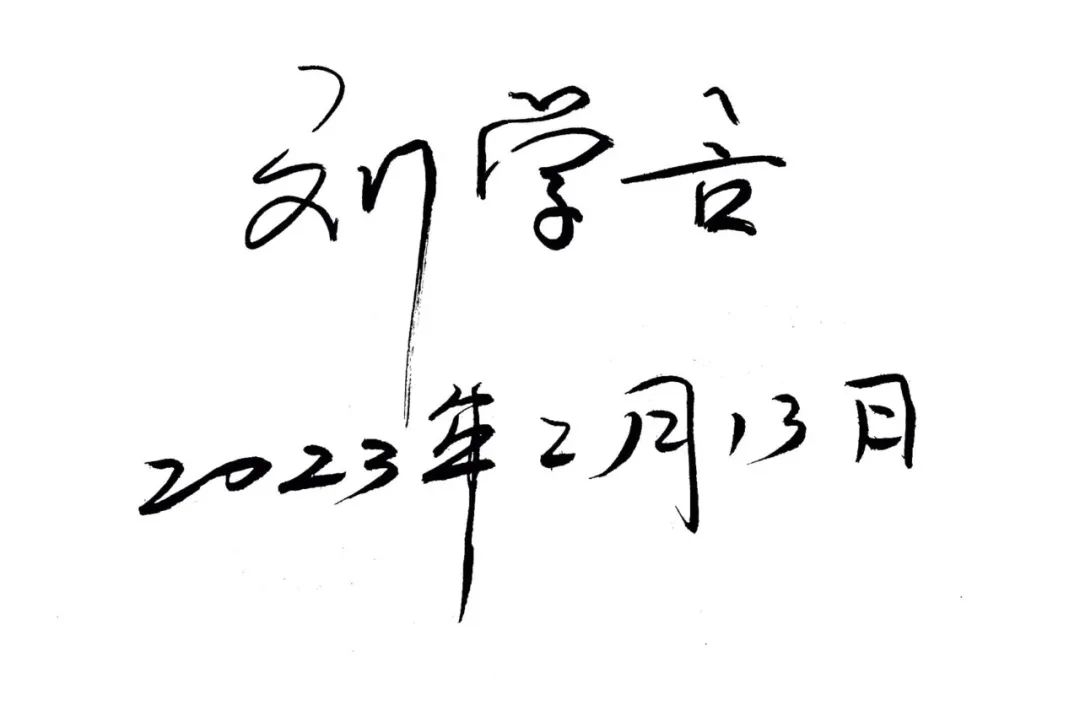 刘学言
2023年2月13日